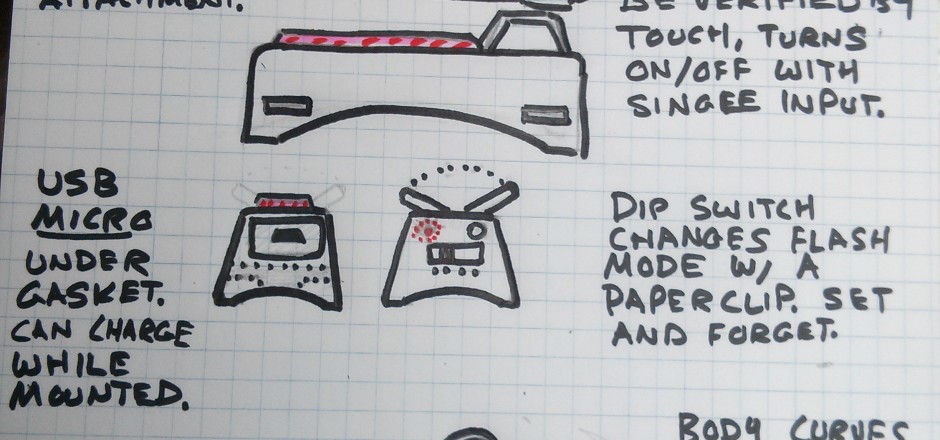 ATTACHMENT.
BE VERIFIED BY
TOUCH, TURNS
ON/OFF WITH
SINGEE INPUT.
USB
MICRO
UNDER
GASKET.
CAN CHARGE
WHILE
MOUNTED.
DIP SWITCH
CHANGES FLASH
MODE W/ A
PAPERCLIP. SET
AND FORGET.
BODY CURVES